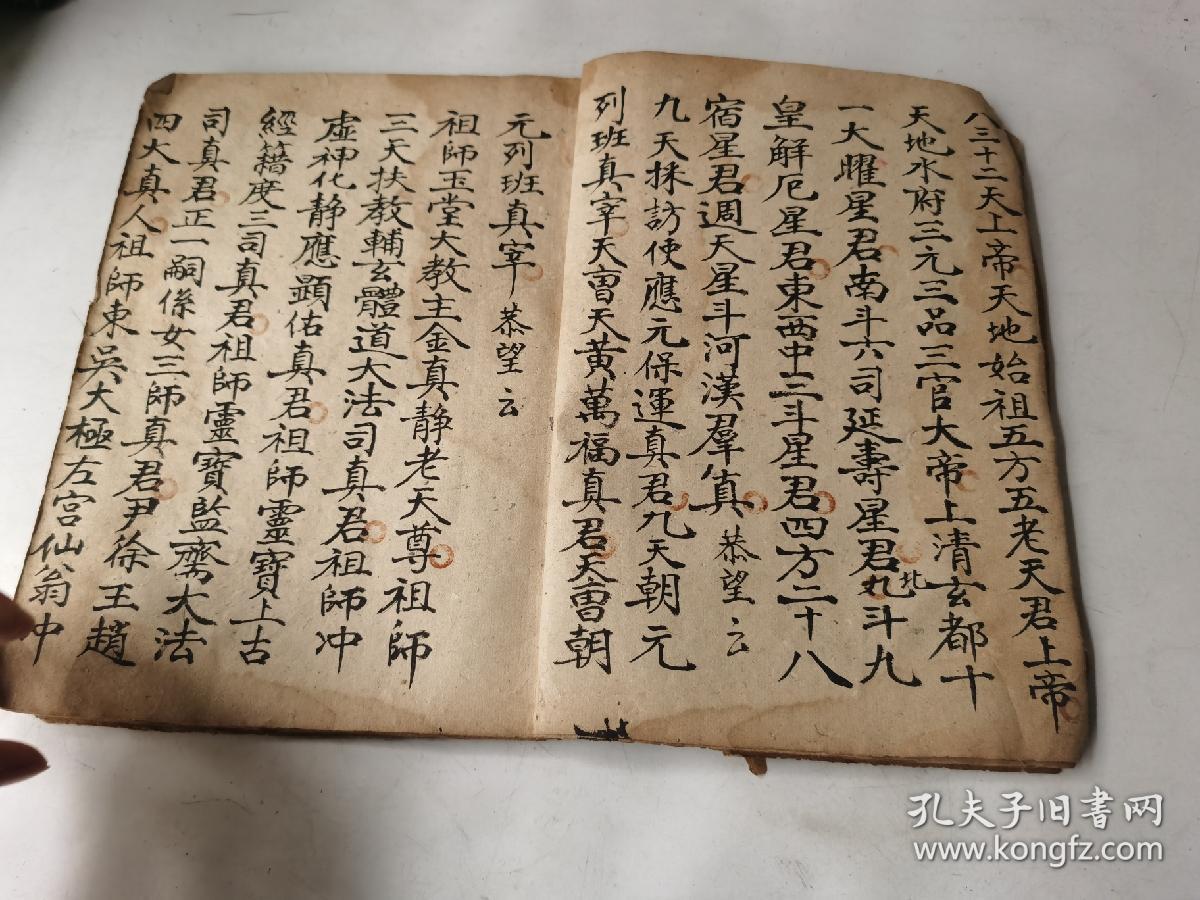 八三十二天上帝天地始祖五方五老天君上帝
天地水府三元三品三官大帝上清玄都十
一大曜星君南斗六司延壽星君北斗九
皇解厄星君東西中三斗星君四方二十八
宿星君週天星斗河漢羣真 恭望云
九天採訪使應元保運真君九天朝元
列班真宰天曹天黃萬福真君天曹朝
元列班真宰 恭望云
祖師玉堂大教主金真靜老天尊祖師
三天扶教輔玄體道大法司真君祖師冲
虛神化靜應顯佑真君祖師靈寶上古
經籍度三司真君祖師靈寶監齋大法
司真君正一嗣係女三師真君尹徐王趙
四大真人祖師東吳大極左宮仙翁冲
孔夫子旧书网
www.kongfz.com